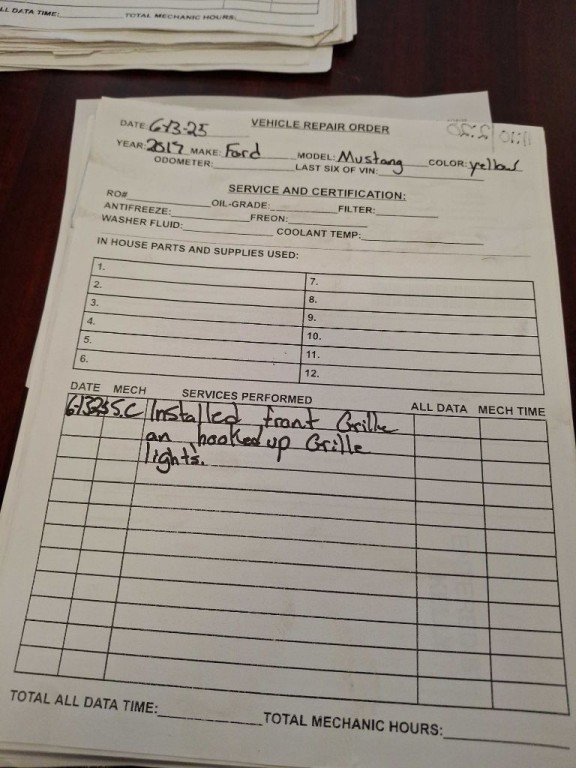 ALL DATA TIME: TOTAL MECHANIC HOURS:
VEHICLE REPAIR ORDER
DATE: 6-13-25
YEAR: 2017 MAKE: Ford MODEL: Mustang COLOR: yellow
ODOMETER: LAST SIX OF VIN:
SERVICE AND CERTIFICATION:
RO# OIL-GRADE: FILTER:
ANTIFREEZE: FREON:
WASHER FLUID: COOLANT TEMP:
IN HOUSE PARTS AND SUPPLIES USED:
1. 7.
2. 8.
3. 9.
4. 10.
5. 11.
6. 12.
DATE MECH SERVICES PERFORMED ALL DATA MECH TIME
6-13-25 S.C Installed front Grille
an hooked up Grille
lights.
TOTAL ALL DATA TIME: TOTAL MECHANIC HOURS: